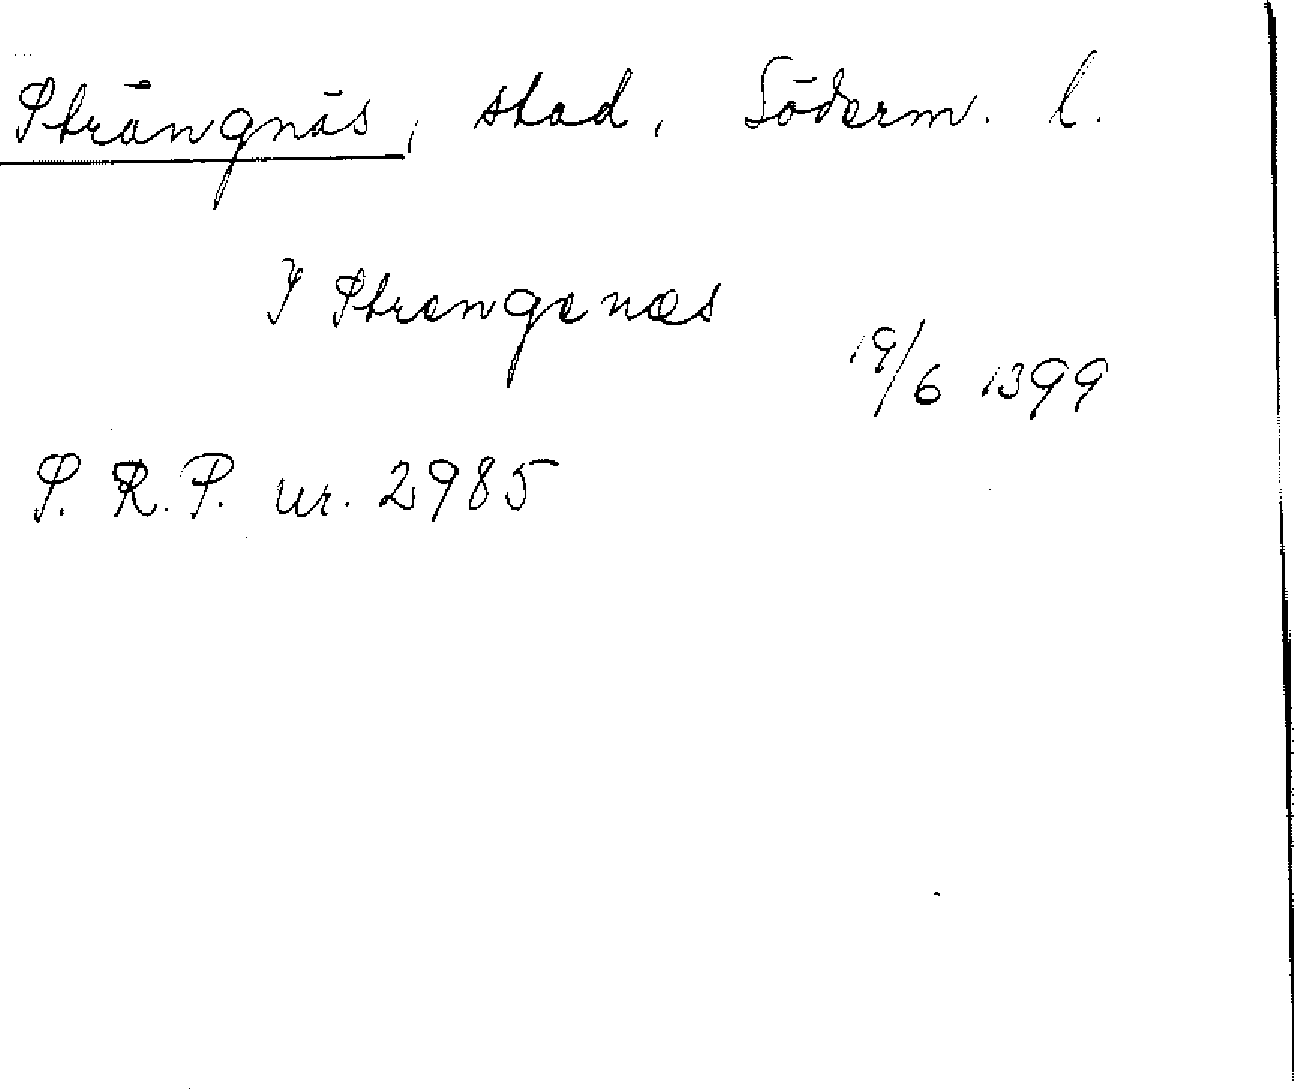 Strängnäs, stad, Söderm. l.
J Strengenæs
19/6 1399
S. R. P. nr. 2985